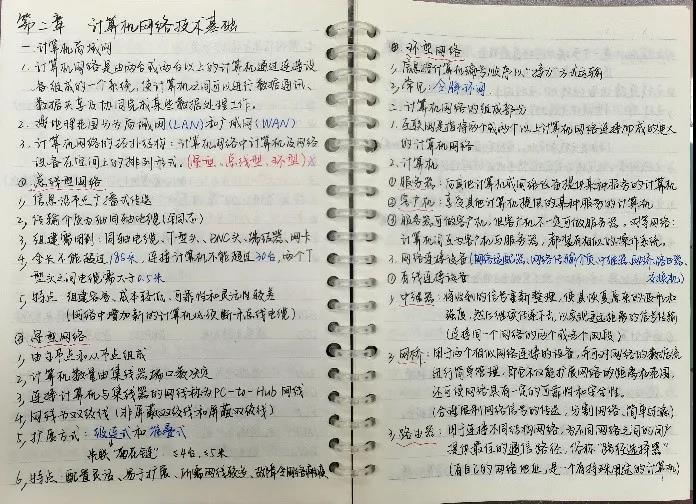 第二章 计算机网络技术基础
一.计算机局域网
1.计算机网络是由两台或两台以上的计算机通过连接设
备组成的一个系统,使计算机之间可以进行数据通讯、
数据共享及协同完成某些数据处理工作。
2.按地理范围分为局域网(LAN)和广域网(WAN)
3.计算机网络的拓扑结构:计算机网络中计算机及网络
设备在空间上的排列形式。(星型、总线型、环型)
① 总线型网络
1,信息沿
2,传输介质为细同轴电缆
3,组建需用到:同轴电缆、T型头、BNC头、端结器、网卡
4,全长不能超过185米,连接计算机不能超过30台,两个T
型头之间电缆需大于0.5米
5,特点 组建容易、成本较低、可靠性和灵活性较差
(网络中增加新的计算机必须断开总线电缆)
② 星型网络
1,由主节点和从节点组成
2,计算机数量由集线器端口数决定
3,连接计算机与集线器的网线称为PC-to-Hub网线
4,网线为双绞线(非屏蔽双绞线和屏蔽双绞线)
5,扩展方式:级连式和堆叠式
串联"菊花链" ≤4台,≤5米
6,特点:配置灵活、易于扩展、所需网线较多、
③ 环型网络
1,信息沿计算机编号顺序以"接力"方式运输
2,常见:令牌环网
二.计算机网络的组成部分
1.互联网是指将两个或两个以上计算机网络连接而成的更大
的计算机网络
2.计算机
① 服务器:为其他计算机或网络设备提供某种服务的计算机
② 客户机:享受其他计算机提供的某种服务的计算机
③ 服务器可做客户机,但客户机不一定可做服务器,对等网络:
计算机间互为客户机与服务器,都装有相似的操作系统。
3.网络连接设备(网络适配器、网络传输介质、中继器、网桥、路由器、
交换机)
① 有线连接设备
1,中继器:将收到的信号重新整理,使其恢复原来的波形和
强度,然后继续传送下去,以实现更远距离的信号传输
(连接同一个网络的两个或多个网段)
2,网桥:用于两个相似网络连接的设备,并可对网络的数据流
进行简单管理,即它不仅能扩展网络的距离和范围,
还可使网络具有一定的可靠性和安全性。
(合理限制网络信号的传送,分割网络、简单过滤)
3,路由器:用于连接不同结构网络,为不同网络之间的用户
提供最佳的通信路径,俗称"路径选择器"
(有自己的网络地址,是一个有特殊用途的计算机)